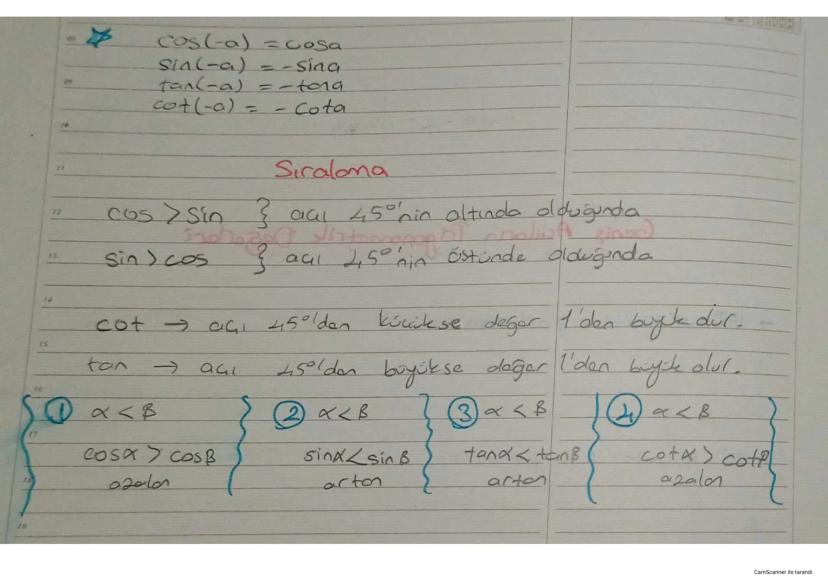 cos(-a) = cosa
sin(-a) = -sina
tan(-a) = -tana
cot(-a) = -cota
Sıralama
cos > sin } açı 45°'nin altında olduğunda
sin > cos } açı 45°'nin üstünde olduğunda
cot → açı 45°'den küçükse değer 1'den büyük dür.
tan → açı 45°'dan büyükse değer 1'dan büyük olur.
1 α < β
cosα > cosβ
azalan
2 α < β
sinα < sinβ
artan
3 α < β
tanα < tanβ
artan
4 α < β
cotα > cotβ
azalan
CamScanner ile tarandı